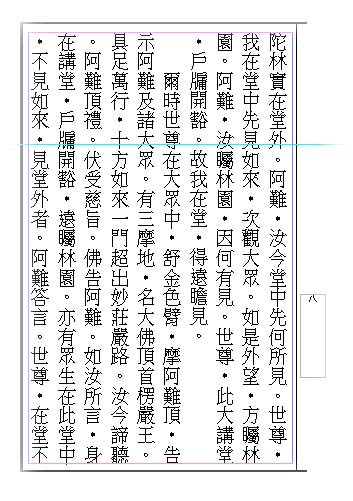 陀林實在堂外。阿難·汝今堂中先何所見。世尊·
我在堂中先見如來·次觀大眾。如是外望·方矚林
園。阿難·汝矚林園·因何有見。世尊·此大講堂
·戶牖開豁。故我在堂·得遠瞻見。
爾時世尊在大眾中·舒金色臂·摩阿難頂·告
示阿難及諸大眾。有三摩地·名大佛頂首楞嚴王。
具足萬行·十方如來一門超出妙莊嚴路。汝今諦聽
。阿難頂禮。伏受慈旨。佛告阿難。如汝所言·身
在講堂·戶牖開豁·遠矚林園。亦有眾生在此堂中
·不見如來·見堂外者。阿難答言。世尊·在堂不
八